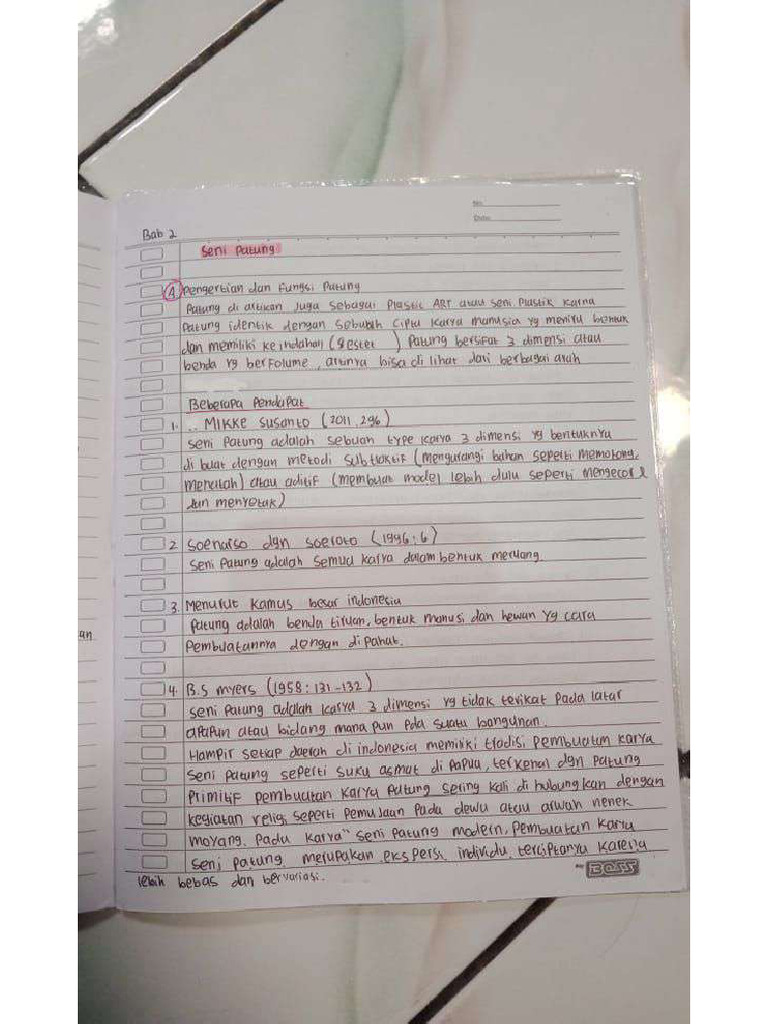 No.
Date
Bab 2
Seni Patung
A Pengertian dan Fungsi Patung
Patung di artikan juga sebagai Plastic ART atau seni Plastik karna
Patung identik dengan sebuah cipta karya manusia yg meniru bentuk
dan memiliki keindahan (gestet ) Patung bersifat 3 dimensi atau
benda yg berfolume, artinya bisa di lihat dari berbagai arah
Beberapa Pendapat
1. .. Mikke Susanto (2011, 296)
Seni Patung adalah sebuah type karya 3 dimensi yg bentuknya
di buat dengan metodi subtraktif (mengurangi bahan seperti memotong,
menatah) atau aditif (membuat model lebih dulu seperti mengecor
dan menyetak)
2. Soenarso dgn Soeroto (1996:6)
Seni Patung adalah semua karya dalam bentuk meruang.
3. Menurut Kamus besar indonesia
Patung adalah benda tiruan, bentuk manusi dan hewan yg cara
Pembuatannya dengan dipahat.
an.
4. B.S myers (1958 : 131-132)
Seni Patung adalah karya 3 dimensi yg tidak terikat Pada latar
apapun atau bidang mana pun pda suatu bangunan.
Hampir setiap daerah di indonesia memiliki tradisi pembuatan karya
Seni Patung seperti suku asmat di Papua, terkenal dgn Patung
Primitif pembuatan karya Patung sering kali di hubungkan dengan
kegiatan religi seperti Pemujaan Pada dewa atau arwah nenek
moyang. Pada karya" seni Patung modern, Pembuatan karya
Seni Patung merupakan ekspersi individu, terciptanya karena
lebih bebas dan bervariasi.
BOSS